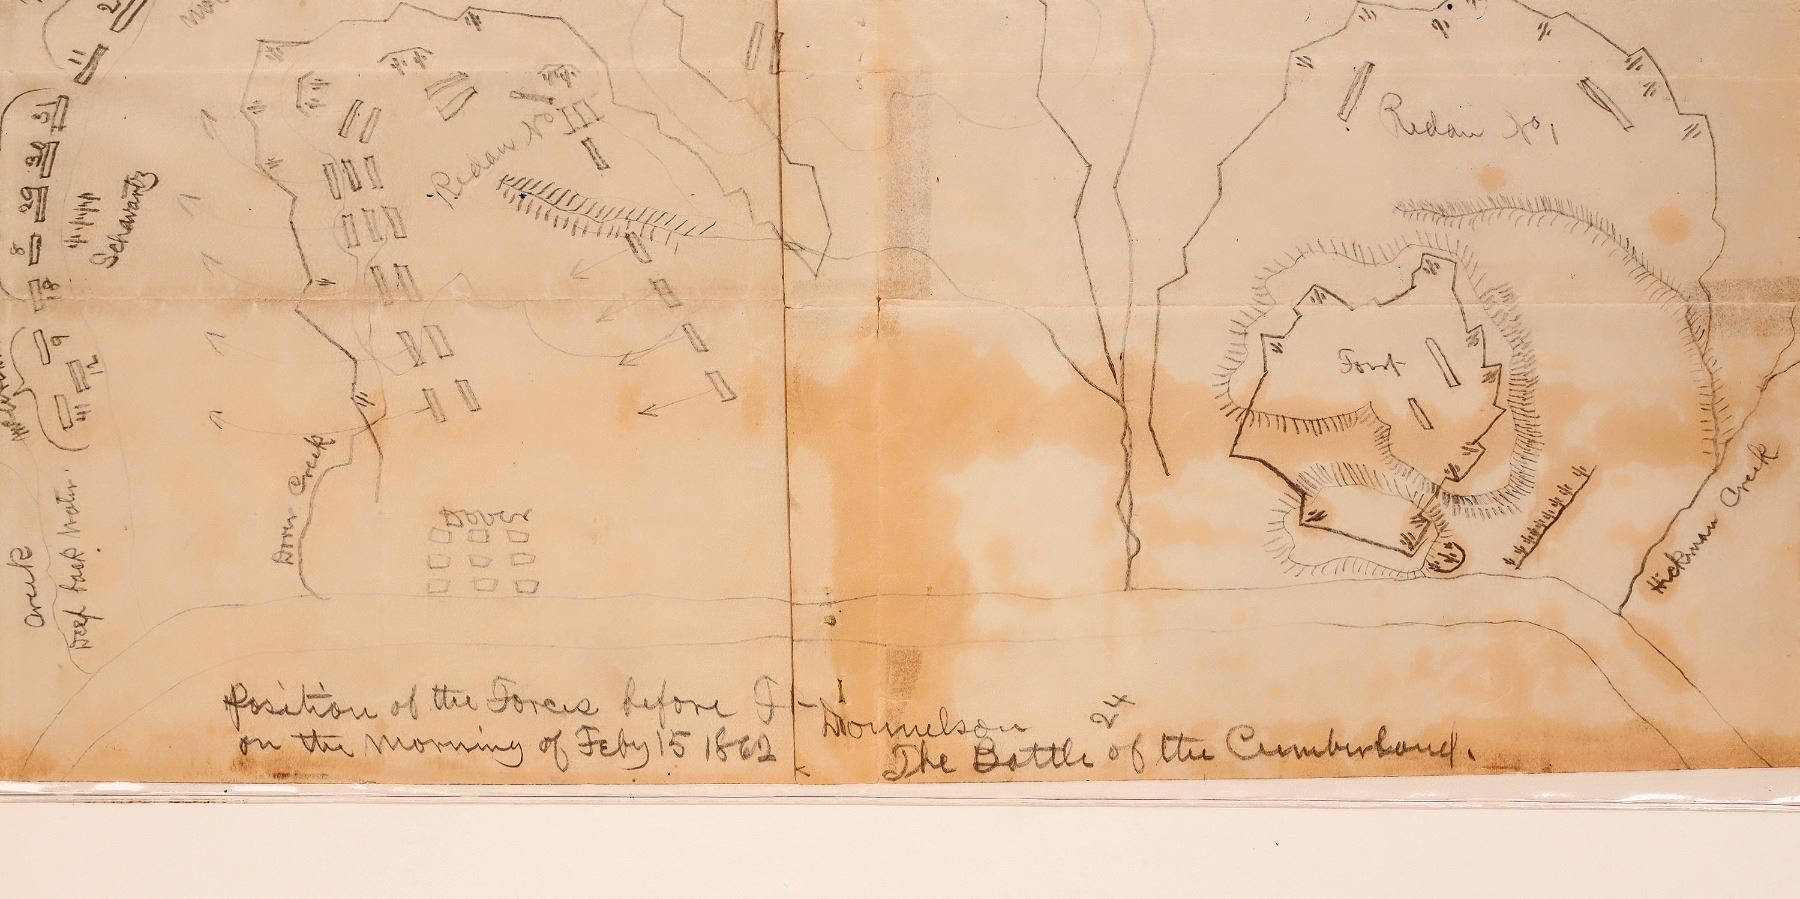 11
31
30
29
8
18
9
12
41
Schwartz
Redan No
Redan No 1
Fort
Dover Creek
Dover
Creek
Deep back Water.
Hickman Creek
Position of the Forces before F- Donnelson
on the morning of Feby 15 1862
24
The Battle of the Cumberland.